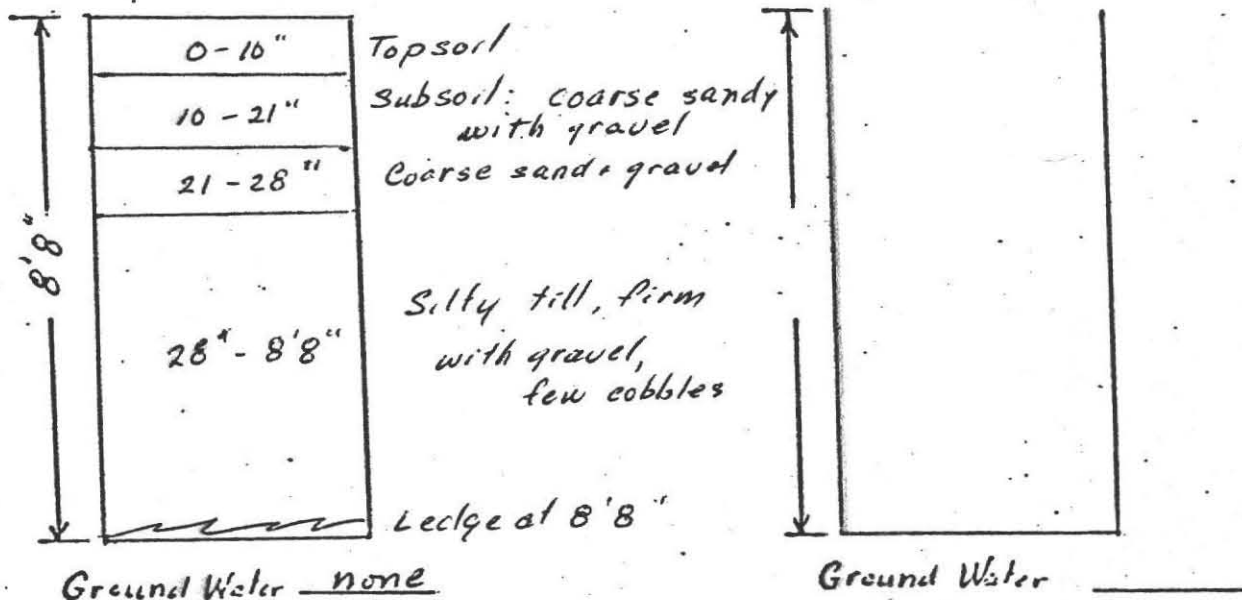 0-10" Topsoil
10-21" Subsoil: coarse sandy
with gravel
21-28" Coarse sand & gravel
8'8"
Silty till, firm
28"-8'8" with gravel,
few cobbles
Ledge at 8'8"
Ground Water none
Ground Water